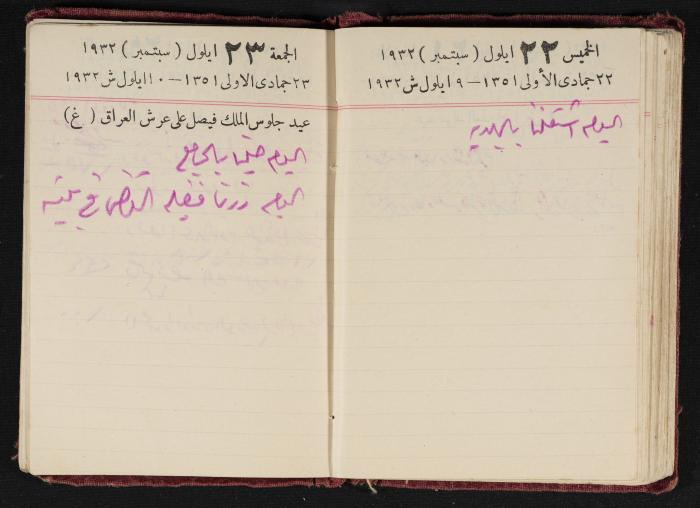 الخميس ٢٢ ايلول ( سبتمبر ) ١٩٣٢
٢٢ جمادى الأولى ١٣٥١ — ٩ ايلول ش ١٩٣٢
اليوم اشتغلنا بالبلدية
الجمعة ٢٣ ايلول ( سبتمبر ) ١٩٣٢
٢٣ جمادى الاولى ١٣٥١ — ١٠ ايلول ش ١٩٣٢
عيد جلوس الملك فيصل على عرش العراق ( غ )
اليوم صلينا بالجامع
اليوم زرنا فضيلة القاضي في بيته